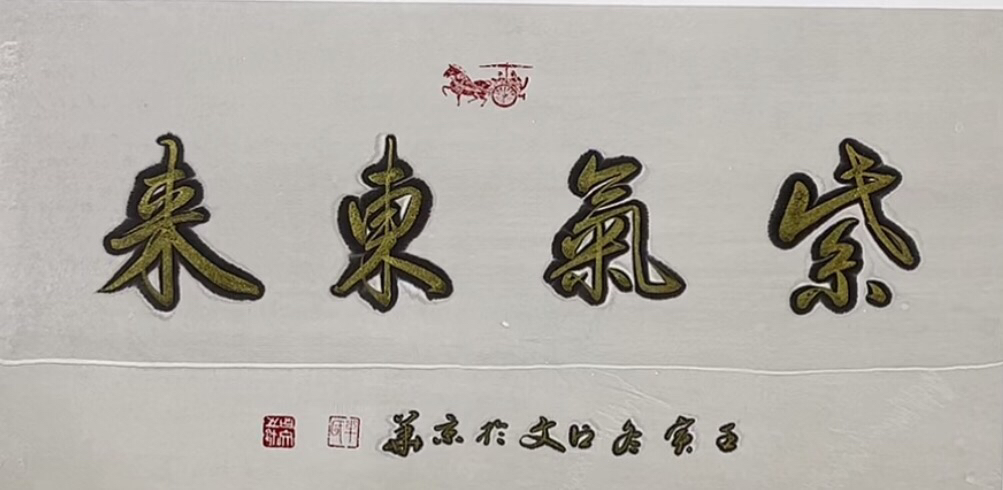 紫氣東来
壬寅冬江文於京華